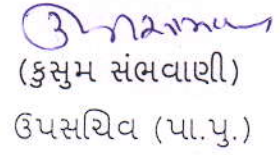 (કુસુમ સંભવાણી)
ઉપસચિવ (પા.પુ.)